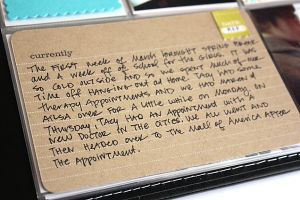 currently
The first week of March brought spring break
and a week off of school for the girls. It was
so cold outside and so we spent much of our
time off hanging out at home. Tacy had some
therapy appointments and we had
Ailsa over for a little while on Monday. On
Thursday, Tacy had an appointment with a
new doctor in the cities. We all went and
then headed over to the Mall of America after
the appointment.